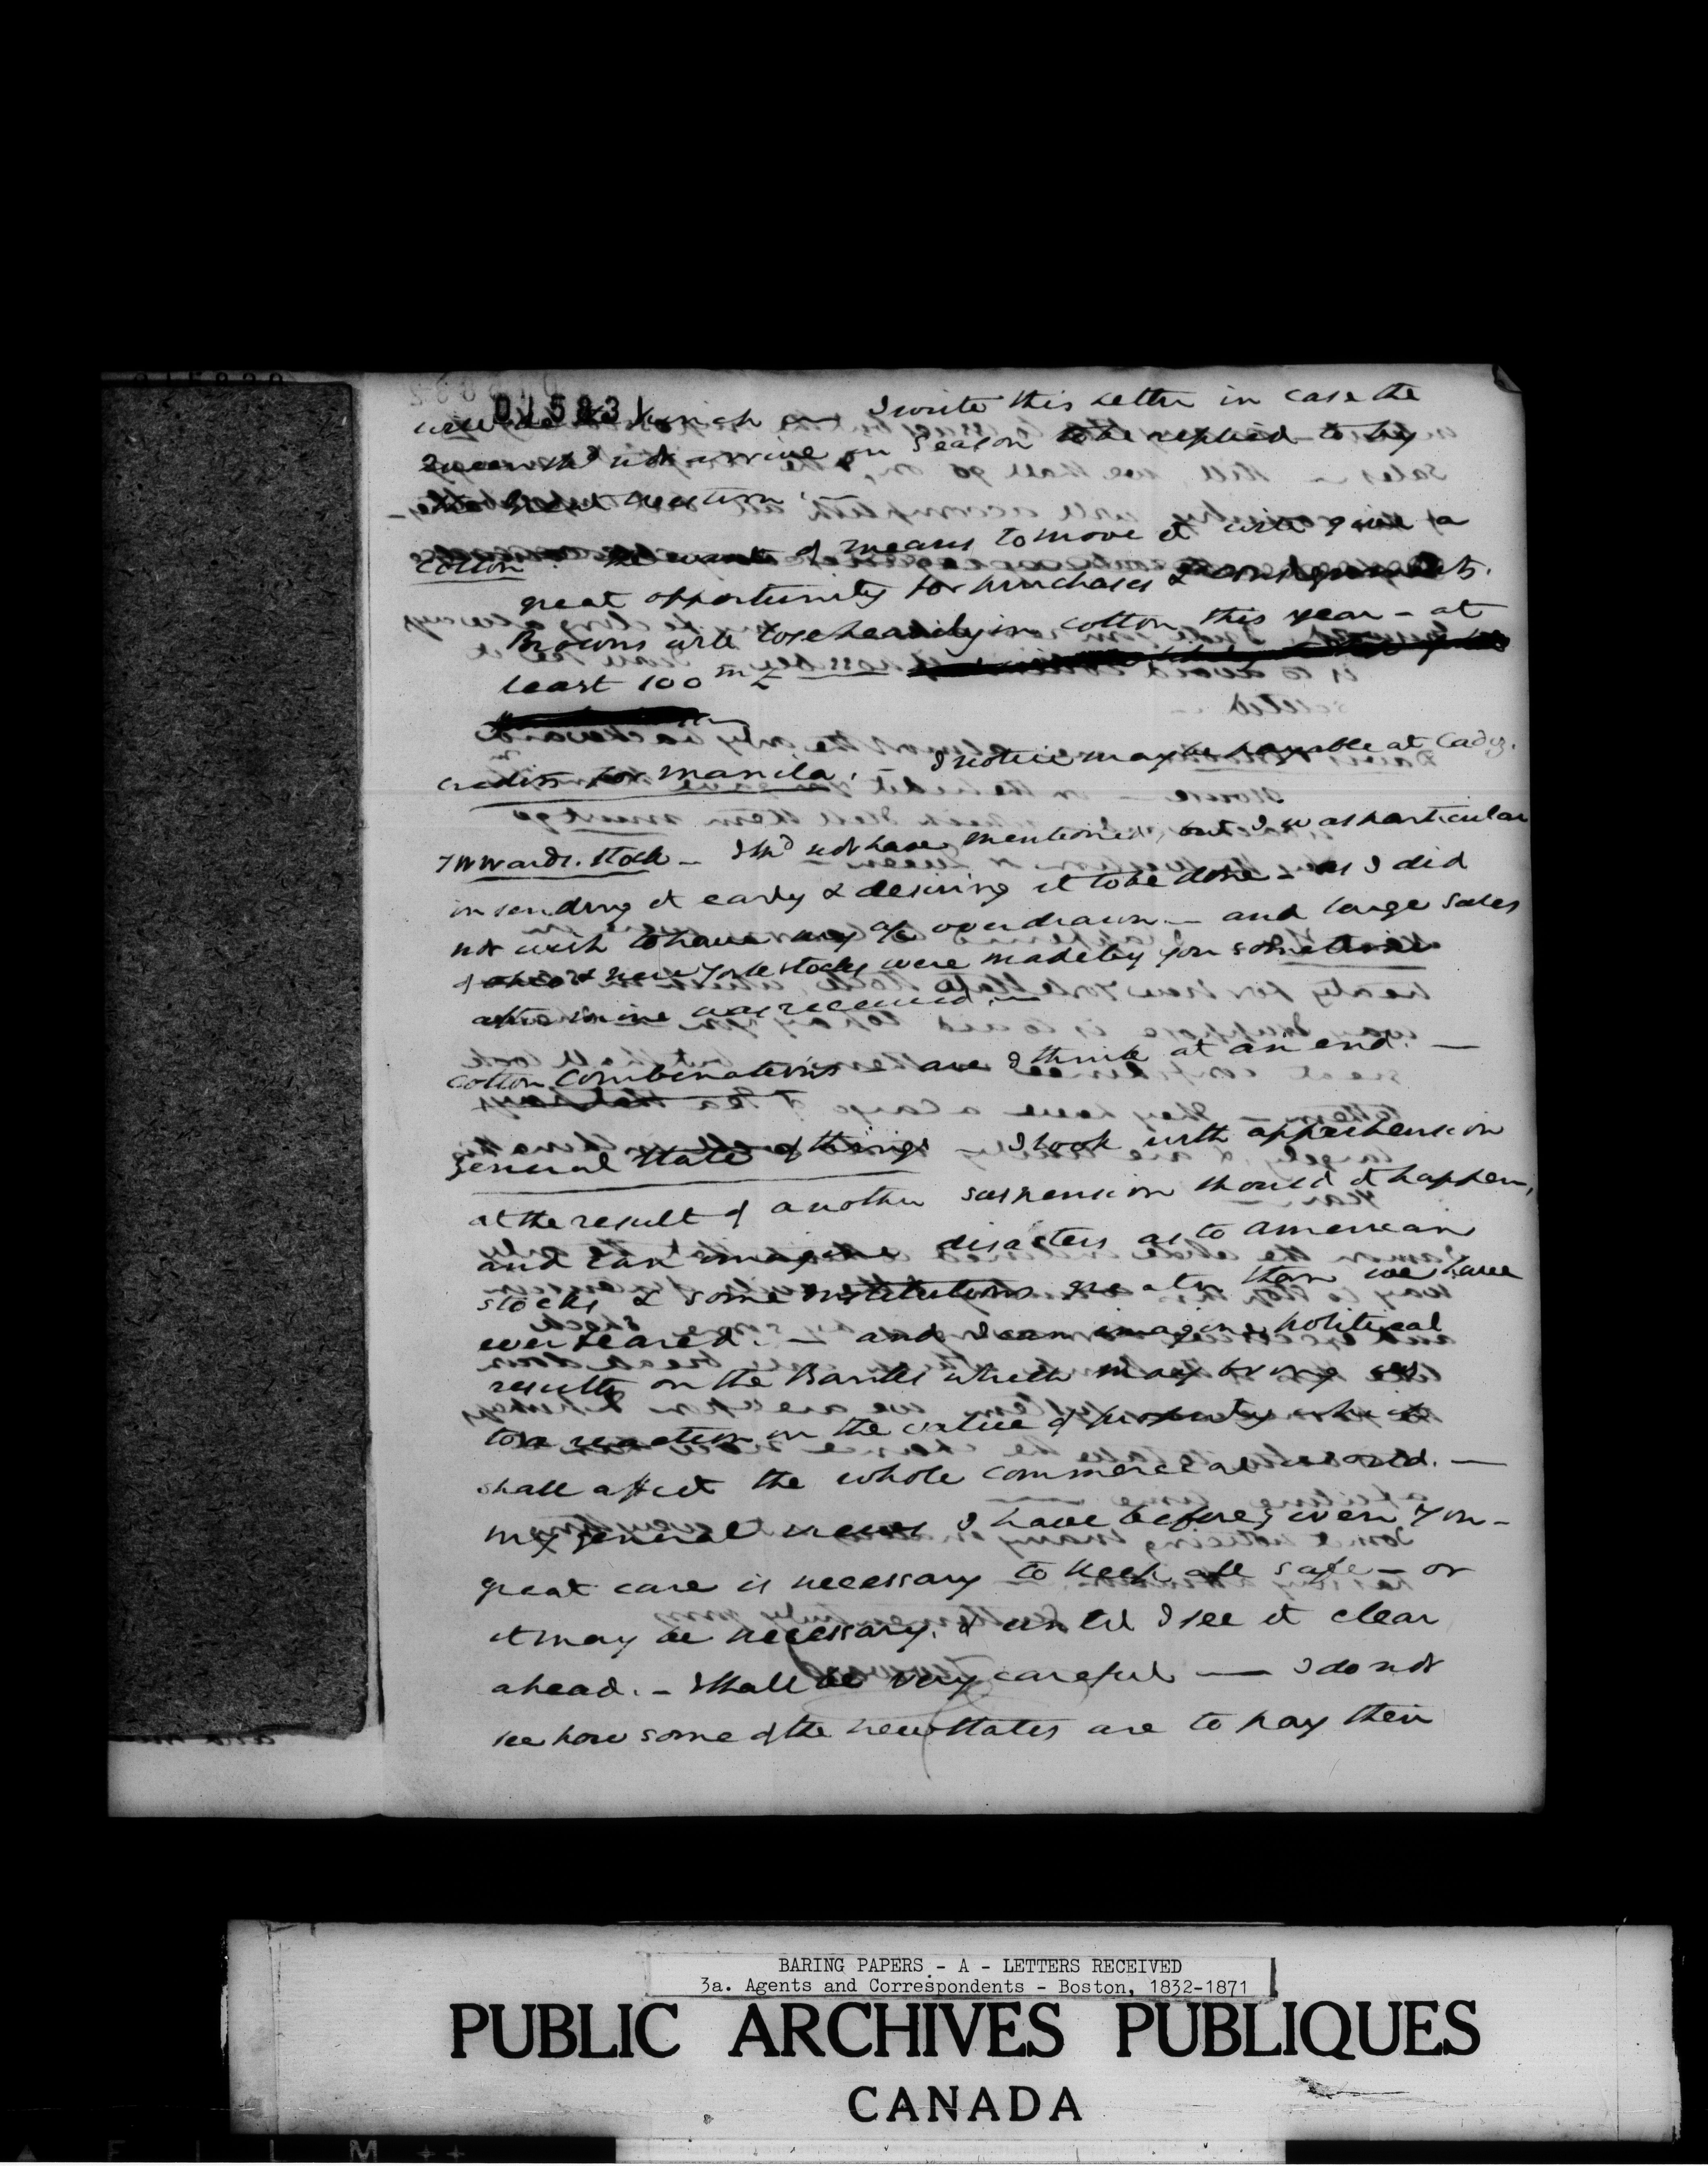 015831
will be I write this Letter in case the
Queen shd not arrive in Season to be replied to by
the Great Western. —
Cotton. The want of means to move it will give a
great opportunity for purchases & consignments.
Browns will lose heavily in cotton this year - at
least 100 m £
Credits for Manila. — I notice may be payable at Cadiz.
TWWards. Stock — I shd not have mentioned, but I was particular
in sending it early & desiring it to be done — as I did
not wish to have my a/c overdrawn. — and large sales
of Ohio & New York stocks were made by you sometime
after mine was received. —
Cotton Combinations are I think at an end. —
General State of things — I look with apprehension
at the result of another suspension should it happen,
and can imagine disasters as to American
stocks & some institutions greater than we have
ever feared. — and I can imagine political
results on the Banks which may bring us
to a reaction in the value of property which
shall affect the whole commercial world. —
My general views I have before given you —
great care is necessary to keep all safe — or
it may be necessary. & until I see it clear
ahead. — I shall be very careful — I do not
see how some of the new States are to pay their
BARING PAPERS - A - LETTERS RECEIVED
3a. Agents and Correspondents - Boston, 1832-1871
PUBLIC ARCHIVES PUBLIQUES
CANADA
F I L M ++